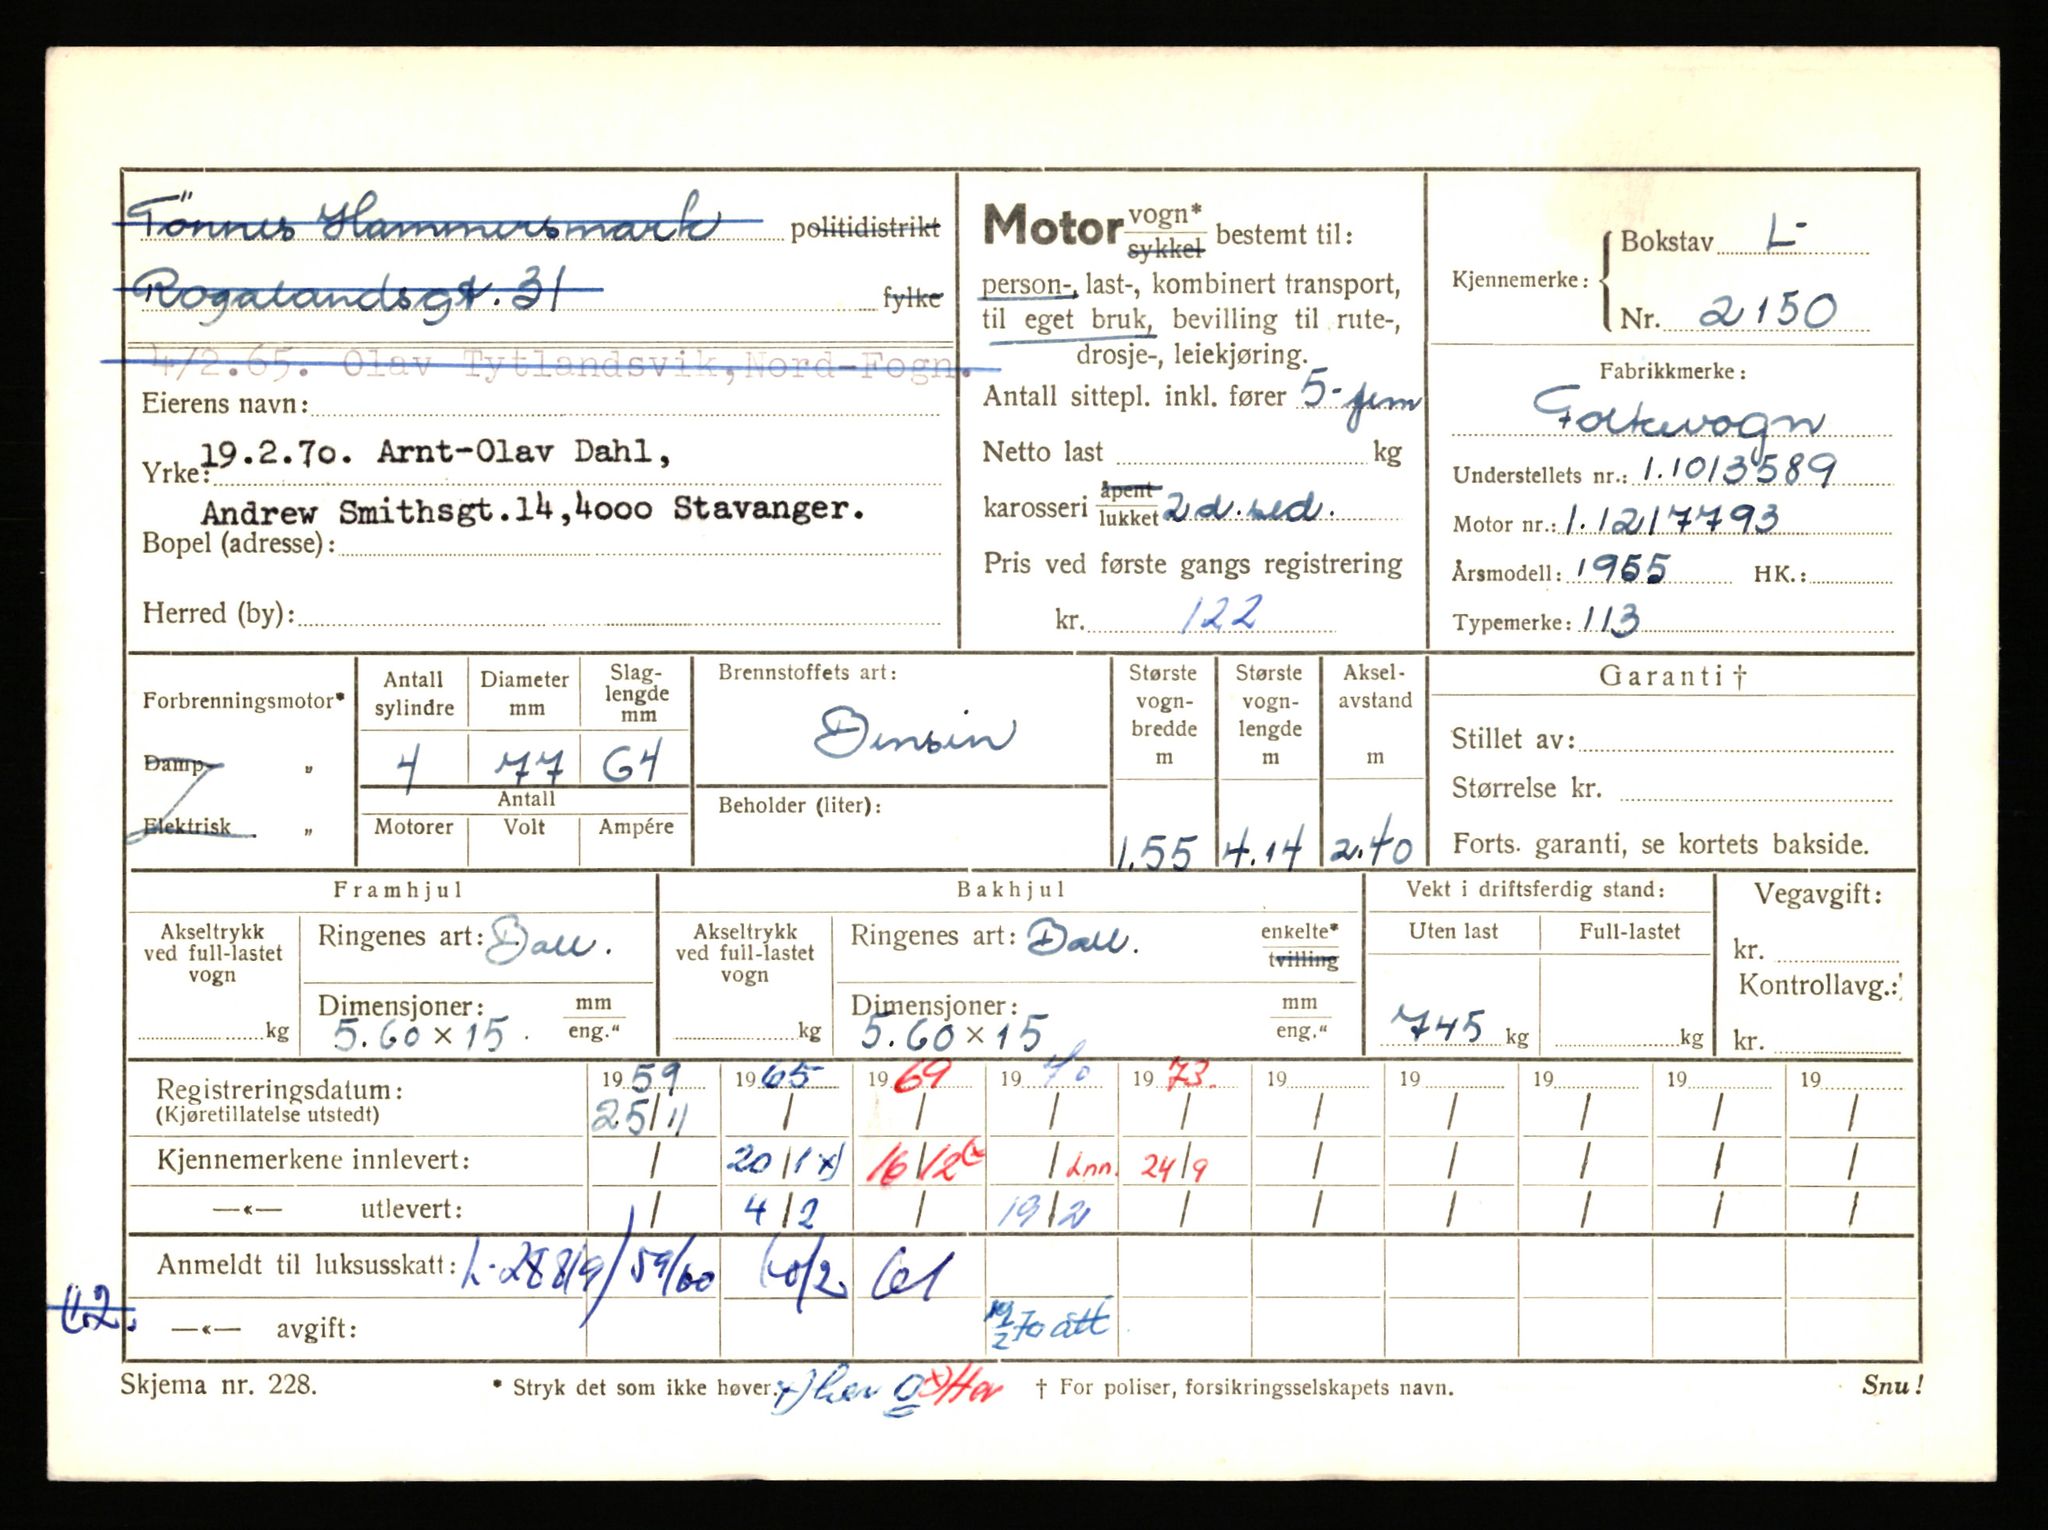 Tönnes Hammersmark politidistrikt
Rogalandsgt. 31 fylke
4/2.65. Olav Tytlandsvik, Nord-Fogn.
Eierens navn:
19.2.70. Arnt-Olav Dahl,
Yrke:
Andrew Smithsgt.14,4000 Stavanger.
Bopel (adresse):
Herred (by):
Motor vogn* sykkel bestemt til:
person-, last-, kombinert transport,
til eget bruk, bevilling til rute-,
drosje-, leiekjøring.
Antall sittepl. inkl. fører 5- fem
Netto last kg
karosseri åpent lukket 2 d. sed.
Pris ved første gangs registrering
kr. 122
Kjennemerke: Bokstav L-
Nr. 2150
Fabrikkmerke:
Folkevogn
Understellets nr.: 1.1013589
Motor nr.: 1.1217793
Årsmodell: 1955 HK.:
Typemerke: 113
Forbrenningsmotor*
Damp- „
Elektrisk „
Antall sylindre 4
Diameter mm 77
Slaglengde mm 64
Antall
Motorer Volt Ampére
Brennstoffets art:
Bensin
Beholder (liter):
Største vogn-bredde m 1.55
Største vogn-lengde m 4.14
Aksel-avstand m 2.40
Garanti †
Stillet av:
Størrelse kr.
Forts. garanti, se kortets bakside.
Framhjul
Akseltrykk ved full-lastet vogn kg
Ringenes art: Ball.
Dimensjoner: mm eng."
5.60 × 15
Bakhjul
Akseltrykk ved full-lastet vogn kg
Ringenes art: Ball. enkelte* tvilling
Dimensjoner: mm eng."
5.60 × 15
Vekt i driftsferdig stand:
Uten last Full-lastet
745 kg kg
Vegavgift:
kr.
Kontrollavg.:
kr.
Registreringsdatum: 1959 1965 1969 1970 1973. 19 19 19 19 19
(Kjøretillatelse utstedt) 25/11 / / / / / / / / /
Kjennemerkene innlevert: / 20/1 x) 16/12 (x / Inn. 24/9 / / / / /
—«— utlevert: / 4/2 / 19/2 / / / / / /
Anmeldt til luksusskatt: L-28819/59/60 60/2 61
62.
—«— avgift: 19/2 70 att
Skjema nr. 228. * Stryk det som ikke høver. x) her x) Her † For poliser, forsikringsselskapets navn. Snu!